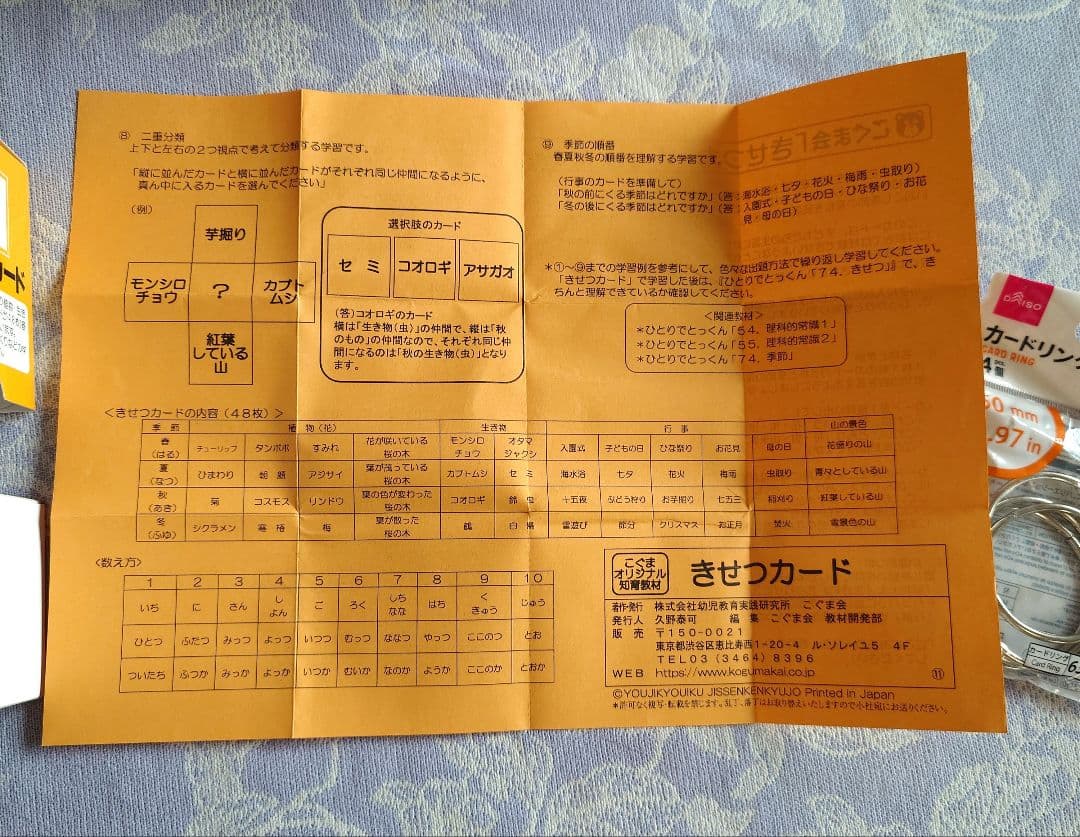 ⑧ 二重分類
上下と左右の２つ視点で考えて分類する学習です。
「縦に並んだカードと横に並んだカードがそれぞれ同じ仲間になるように、
真ん中に入るカードを選んでください」
(例)
芋掘り
モンシロ
チョウ
？
カブト
ムシ
紅葉
している
山
選択肢のカード
セミ
コオロギ
アサガオ
(答)コオロギのカード
横は「生き物(虫)」の仲間で、縦は「秋
のもの」の仲間なので、それぞれ同じ仲
間になるのは「秋の生き物(虫)」となり
ます。
⑨ 季節の順番
春夏秋冬の順番を理解する学習です。
(行事のカードを準備して)
「秋の前にくる季節はどれですか」(答：海水浴・七夕・花火・梅雨・虫取り)
「冬の後にくる季節はどれですか」(答：入園式・子どもの日・ひな祭り・お花
見・母の日)
＊①～⑨までの学習例を参考にして、色々な出題方法で繰り返し学習してください。
「きせつカード」で学習した後は、『ひとりでとっくん「７４．きせつ」』で、き
ちんと理解できているか確認してください。
＜関連教材＞
＊ひとりでとっくん「５４．理科的常識１」
＊ひとりでとっくん「５５．理科的常識２」
＊ひとりでとっくん「７４．季節」
＜きせつカードの内容（４８枚）＞
季節 植物（花） 生き物 行事 山の景色
春（はる） チューリップ タンポポ すみれ 花が咲いている桜の木 モンシロチョウ オタマジャクシ 入園式 子どもの日 ひな祭り お花見 母の日 花盛りの山
夏（なつ） ひまわり 朝顔 アジサイ 葉が茂っている桜の木 カブトムシ セミ 海水浴 七夕 花火 梅雨 虫取り 青々としている山
秋（あき） 菊 コスモス リンドウ 葉の色が変わった桜の木 コオロギ 鈴虫 十五夜 ぶどう狩り お芋掘り 七五三 稲刈り 紅葉している山
冬（ふゆ） シクラメン 寒椿 梅 葉が散った桜の木 鶴 白鳥 雪遊び 節分 クリスマス お正月 焚火 雪景色の山
＜数え方＞
１ ２ ３ ４ ５ ６ ７ ８ ９ １０
いち に さん しよん ご ろく しちなな はち くきゅう じゅう
ひとつ ふたつ みっつ よっつ いつつ むっつ ななつ やっつ ここのつ とお
ついたち ふつか みっか よっか いつか むいか なのか ようか ここのか とおか
こぐま
オリジナル
知育教材
きせつカード
著作・発行 株式会社幼児教育実践研究所 こぐま会
発行人 久野泰可 編集 こぐま会 教材開発部
販売 〒150-0021
東京都渋谷区恵比寿西1-20-4 ル・ソレイユ5 4F
TEL03(3464)8396
WEB https://www.kogumakai.co.jp
⑪
©YOUJIKYOUIKU JISSENKENKYUJO Printed in Japan
＊許可なく複写・転載を禁じます。乱丁、落丁はお取替えいたしますので小社宛にお送りください。
DAISO
カードリング
CARD RING
4個
pcs.
カードリング
Card Ring